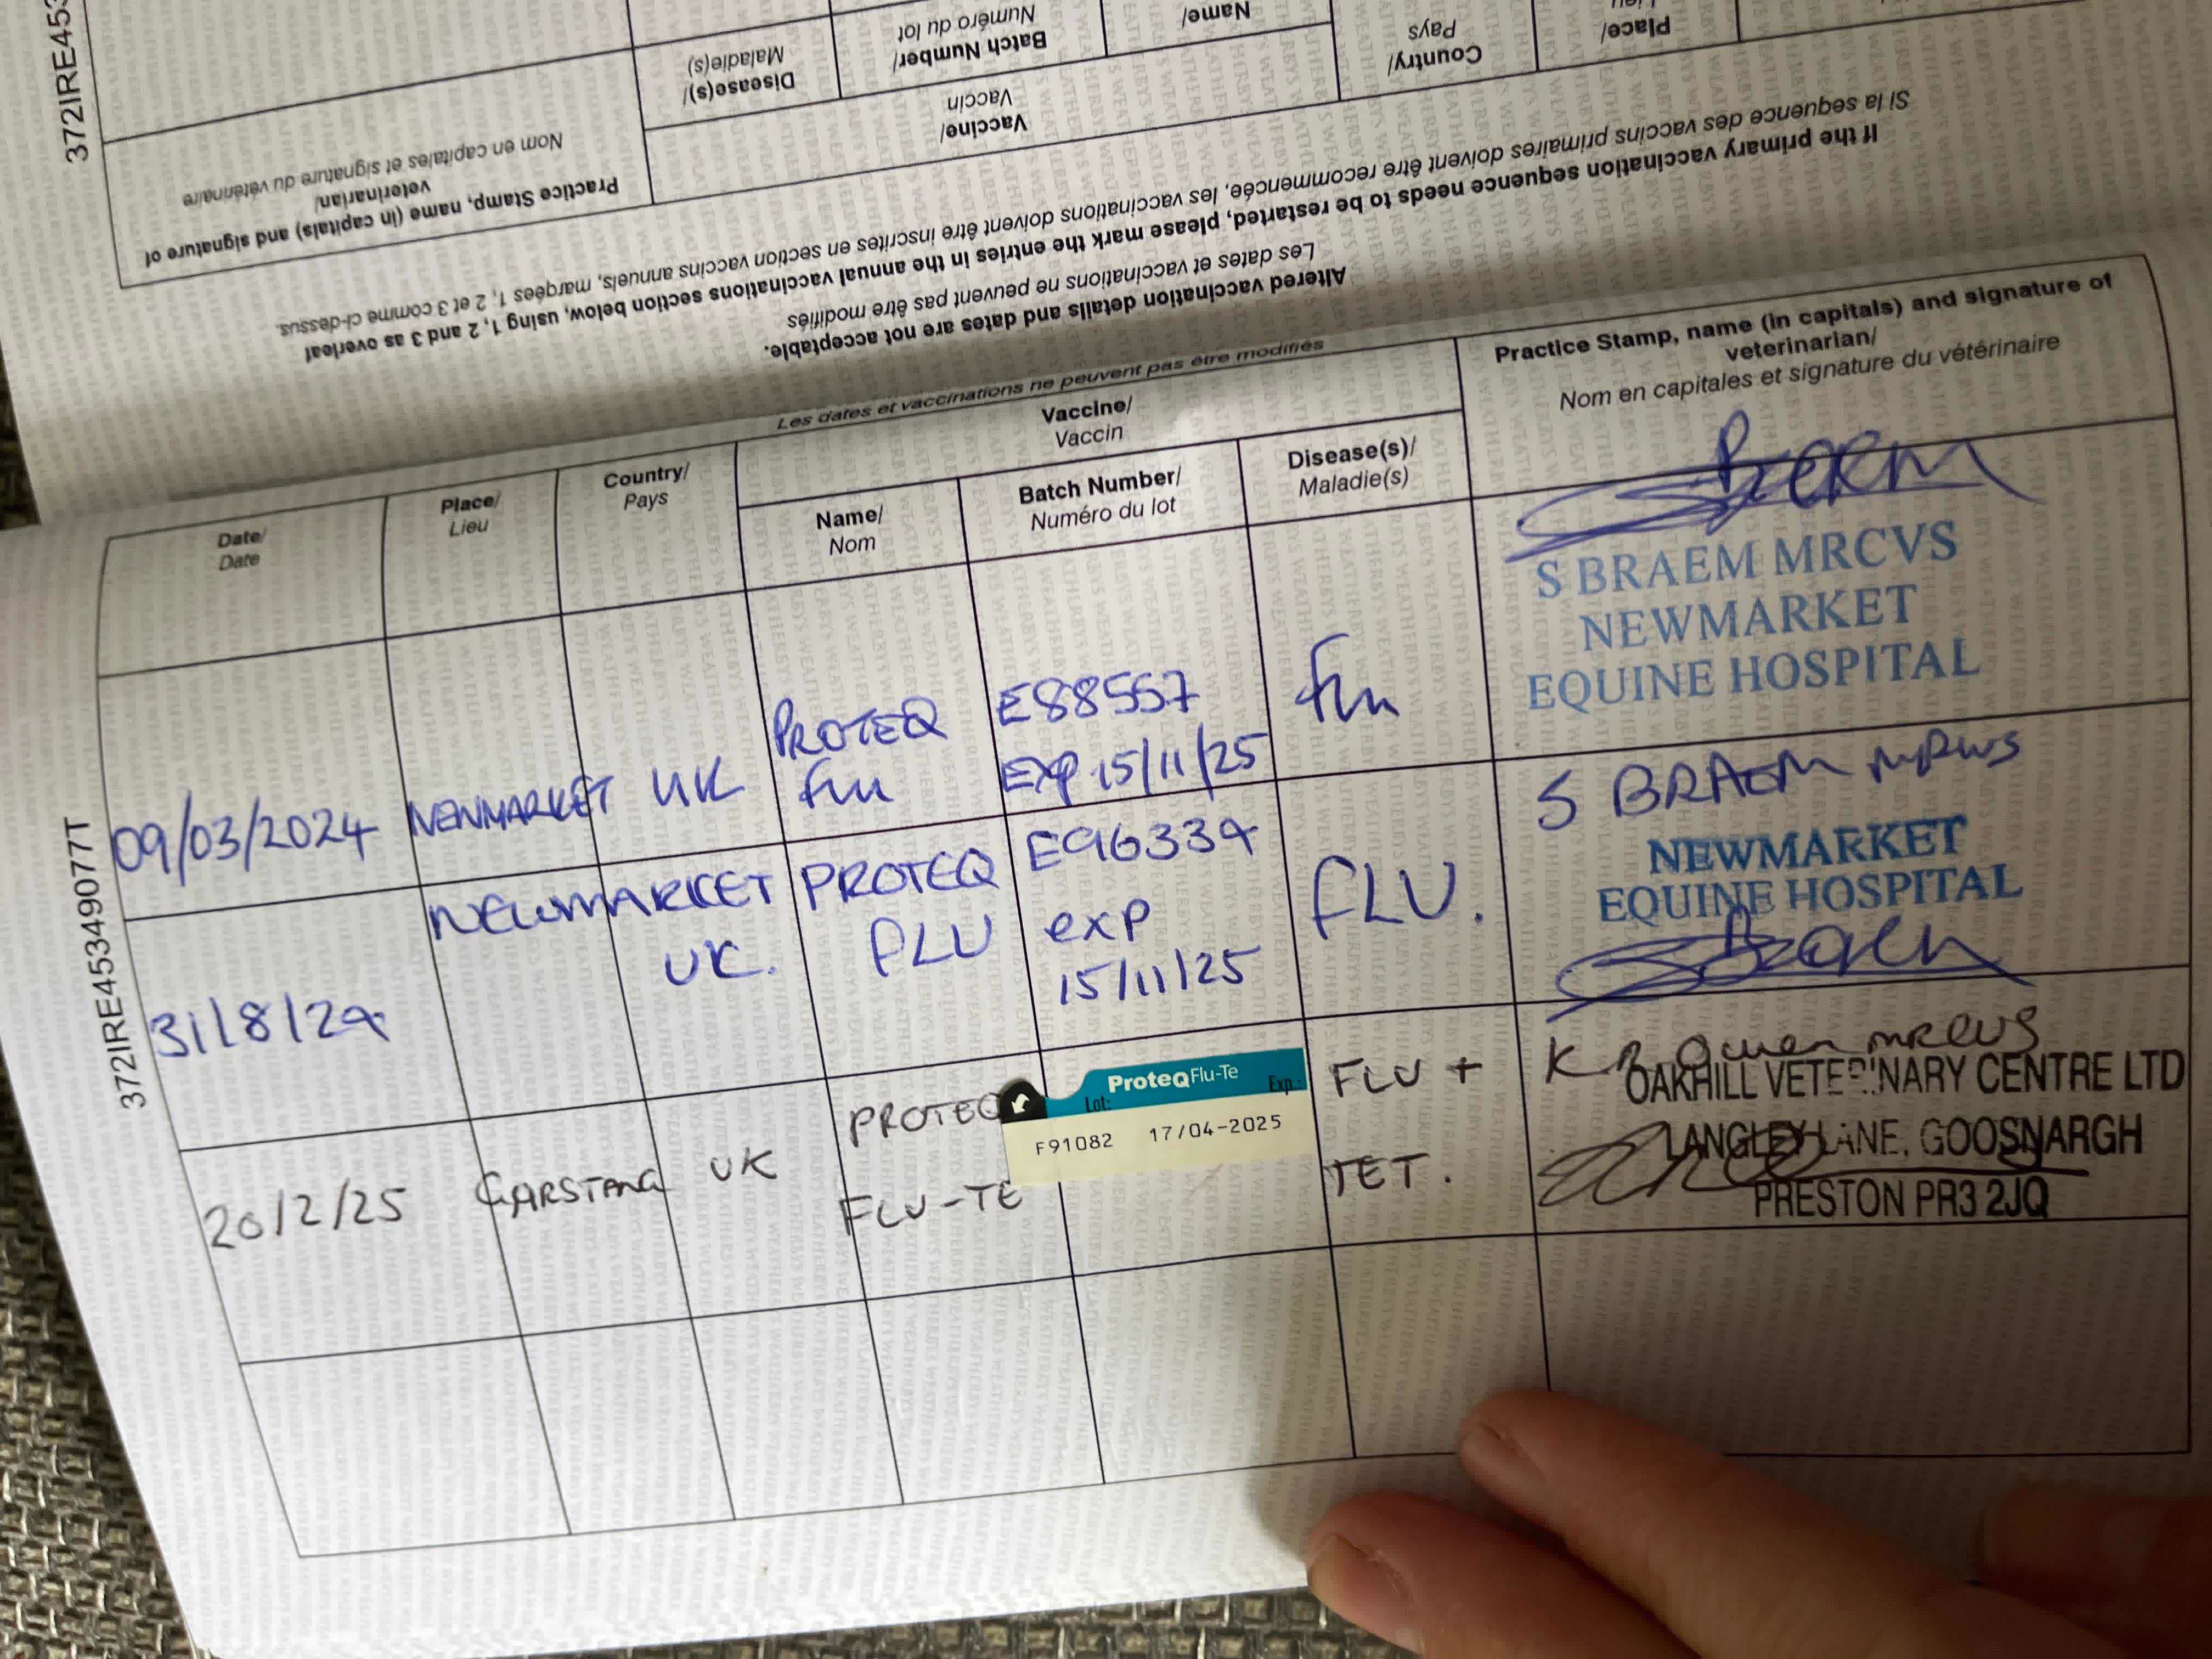 372IRE453
Place/
Lieu
Country/
Pays
Name/
Batch Number/
Numéro du lot
Disease(s)/
Maladie(s)
Vaccine/
Vaccin
Practice Stamp, name (in capitals) and signature of
veterinarian/
Nom en capitales et signature du vétérinaire
Si la sequence des vaccins primaires doivent être recommencée, les vaccinations doivent être inscrites en section vaccins annuels, marqées 1, 2 et 3 comme ci-dessus.
If the primary vaccination sequence needs to be restarted, please mark the entries in the annual vaccinations section below, using 1, 2 and 3 as overleaf
Les dates et vaccinations ne peuvent pas être modifiés
Altered vaccination details and dates are not acceptable.
Les dates et vaccinations ne peuvent pas être modifiés
372IRE45349077T
Date/
Date
Place/
Lieu
Country/
Pays
Vaccine/
Vaccin
Name/
Nom
Batch Number/
Numéro du lot
Disease(s)/
Maladie(s)
Practice Stamp, name (in capitals) and signature of
veterinarian/
Nom en capitales et signature du vétérinaire
09/03/2024
NEWMARKET
UK
PROTEQ
Flu
E88557
EXP 15/11/25
Flu
Braem
S BRAEM MRCVS
NEWMARKET
EQUINE HOSPITAL
31/8/24
NEWMARKET
UK.
PROTEQ
FLU
E96334
exp
15/11/25
FLU.
S BRAEM MRCVS
NEWMARKET
EQUINE HOSPITAL
SBraem
20/2/25
GARSTANG
UK
PROTEQ
FLU-TE
ProteqFlu-Te
Lot: Exp.:
F91082 17/04-2025
FLU +
TET.
K R Owen MRCVS
OAKHILL VETERINARY CENTRE LTD
LANGLEY LANE, GOOSNARGH
PRESTON PR3 2JQ